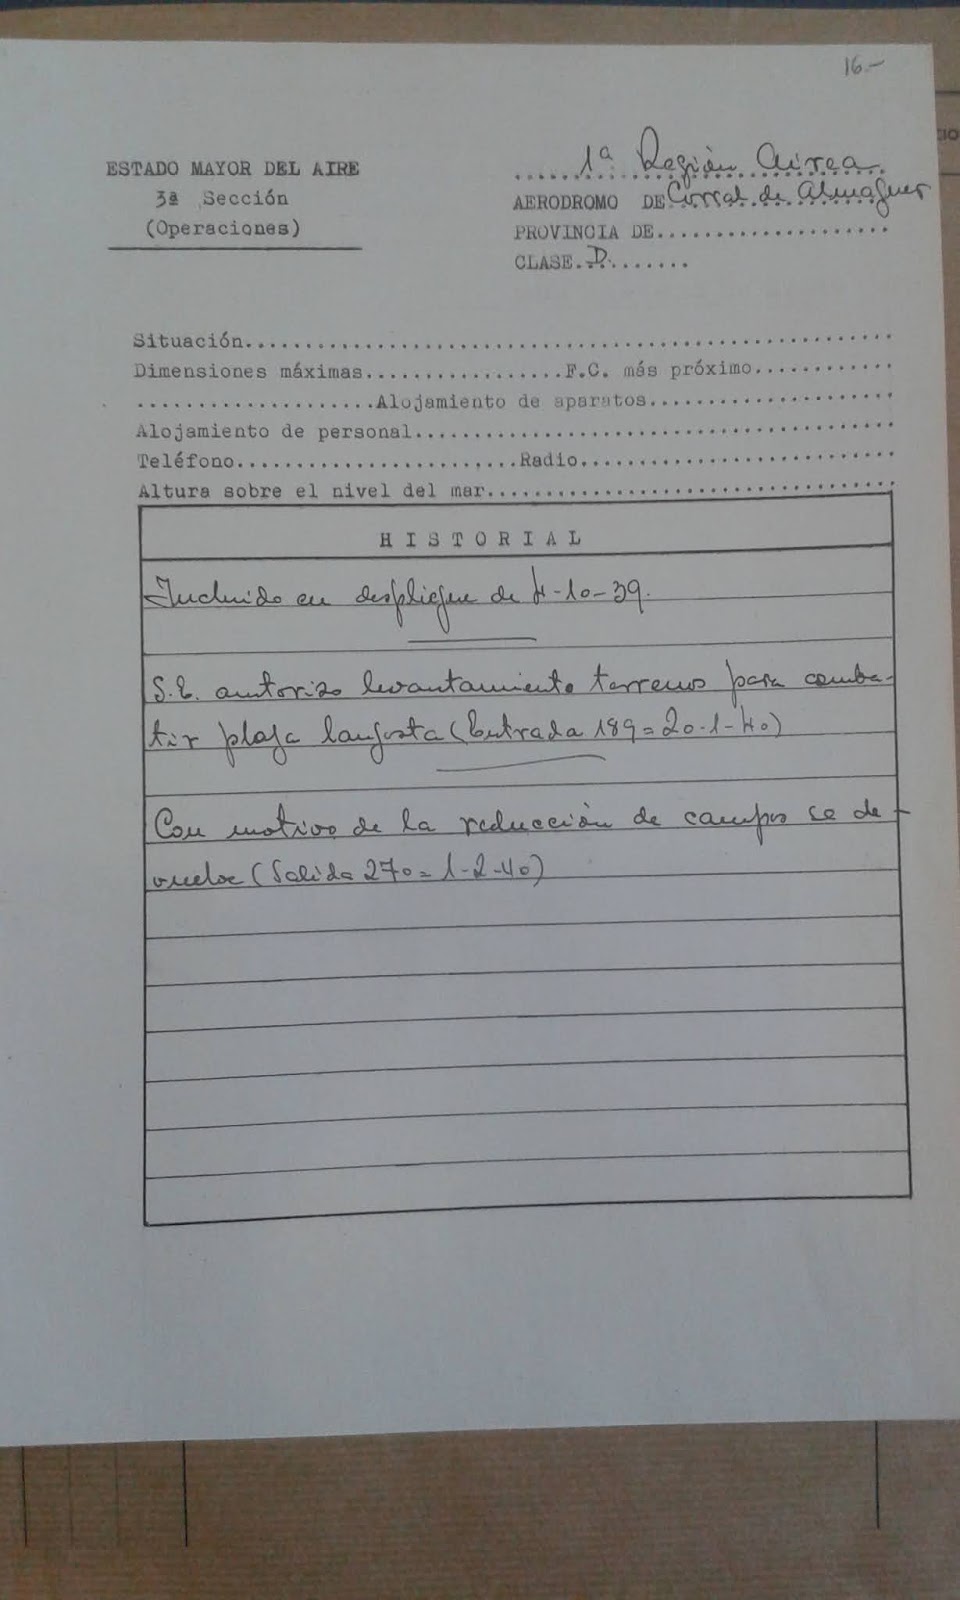 16.-
ESTADO MAYOR DEL AIRE
3ª Sección
(Operaciones)
1ª Región Aérea
AERODROMO DE Corral de Almaguer
PROVINCIA DE....................
CLASE..D........
Situación.......................................................
Dimensiones máximas.................F.C. más próximo............
....................Alojamiento de aparatos.....................
Alojamiento de personal.........................................
Teléfono........................Radio...........................
Altura sobre el nivel del mar...................................
HISTORIAL
Incluido en despliegue de 4-10-39.
S.E. autoriza levantamiento terrenos para comba-
tir plaga langosta (Entrada 189=20-1-40)
Con motivo de la reducción de campos se de-
vuelve (Salida 270=1-2-40)